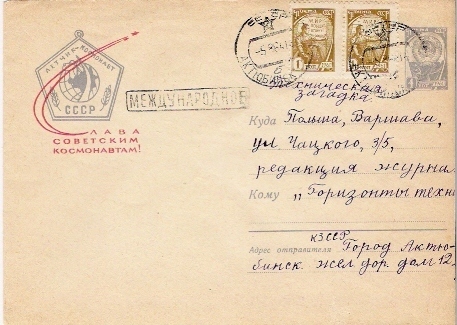 ЛЕТЧИК-КОСМОНАВТ
СССР
СЛАВА
СОВЕТСКИМ
КОСМОНАВТАМ!
МЕЖДУНАРОДНОЕ
МИР
1
1
Техническая
загадка.
Куда Польша, Варшава,
ул Чацкого, 3/5,
редакция журна
Кому „Горизонты техни
КЗССР
Адрес отправителя Город Актю-
бинск. жел. дор. дом 12.